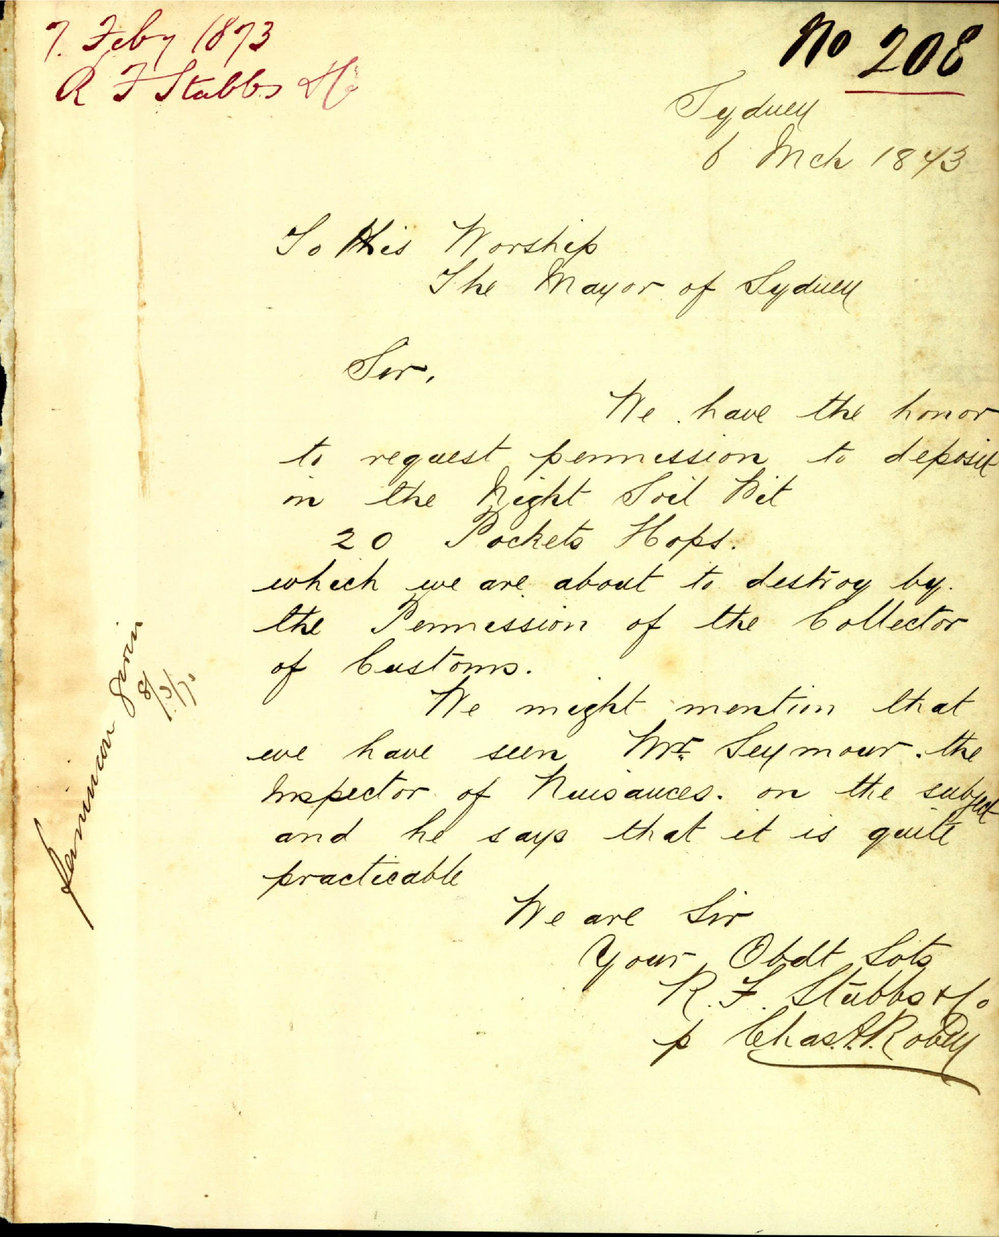 7. Feby 1873
R F Stubbs & Co
No 208
Sydney
6 Mch 1873
To His Worship
The Mayor of Sydney
Sir,
We have the honor
to request permission to deposit
in the Night Soil Pit
20 Pockets Hops.
which we are about to destroy by
the Permission of the Collector
of Customs.
We might mention that
we have seen Mr. Seymour. the
Inspector of Nuisances. on the subject
and he says that it is quite
practicable
We are Sir
Your Obdt Svts
R. F. Stubbs & Co
p Chas. A. Robey
Permission given